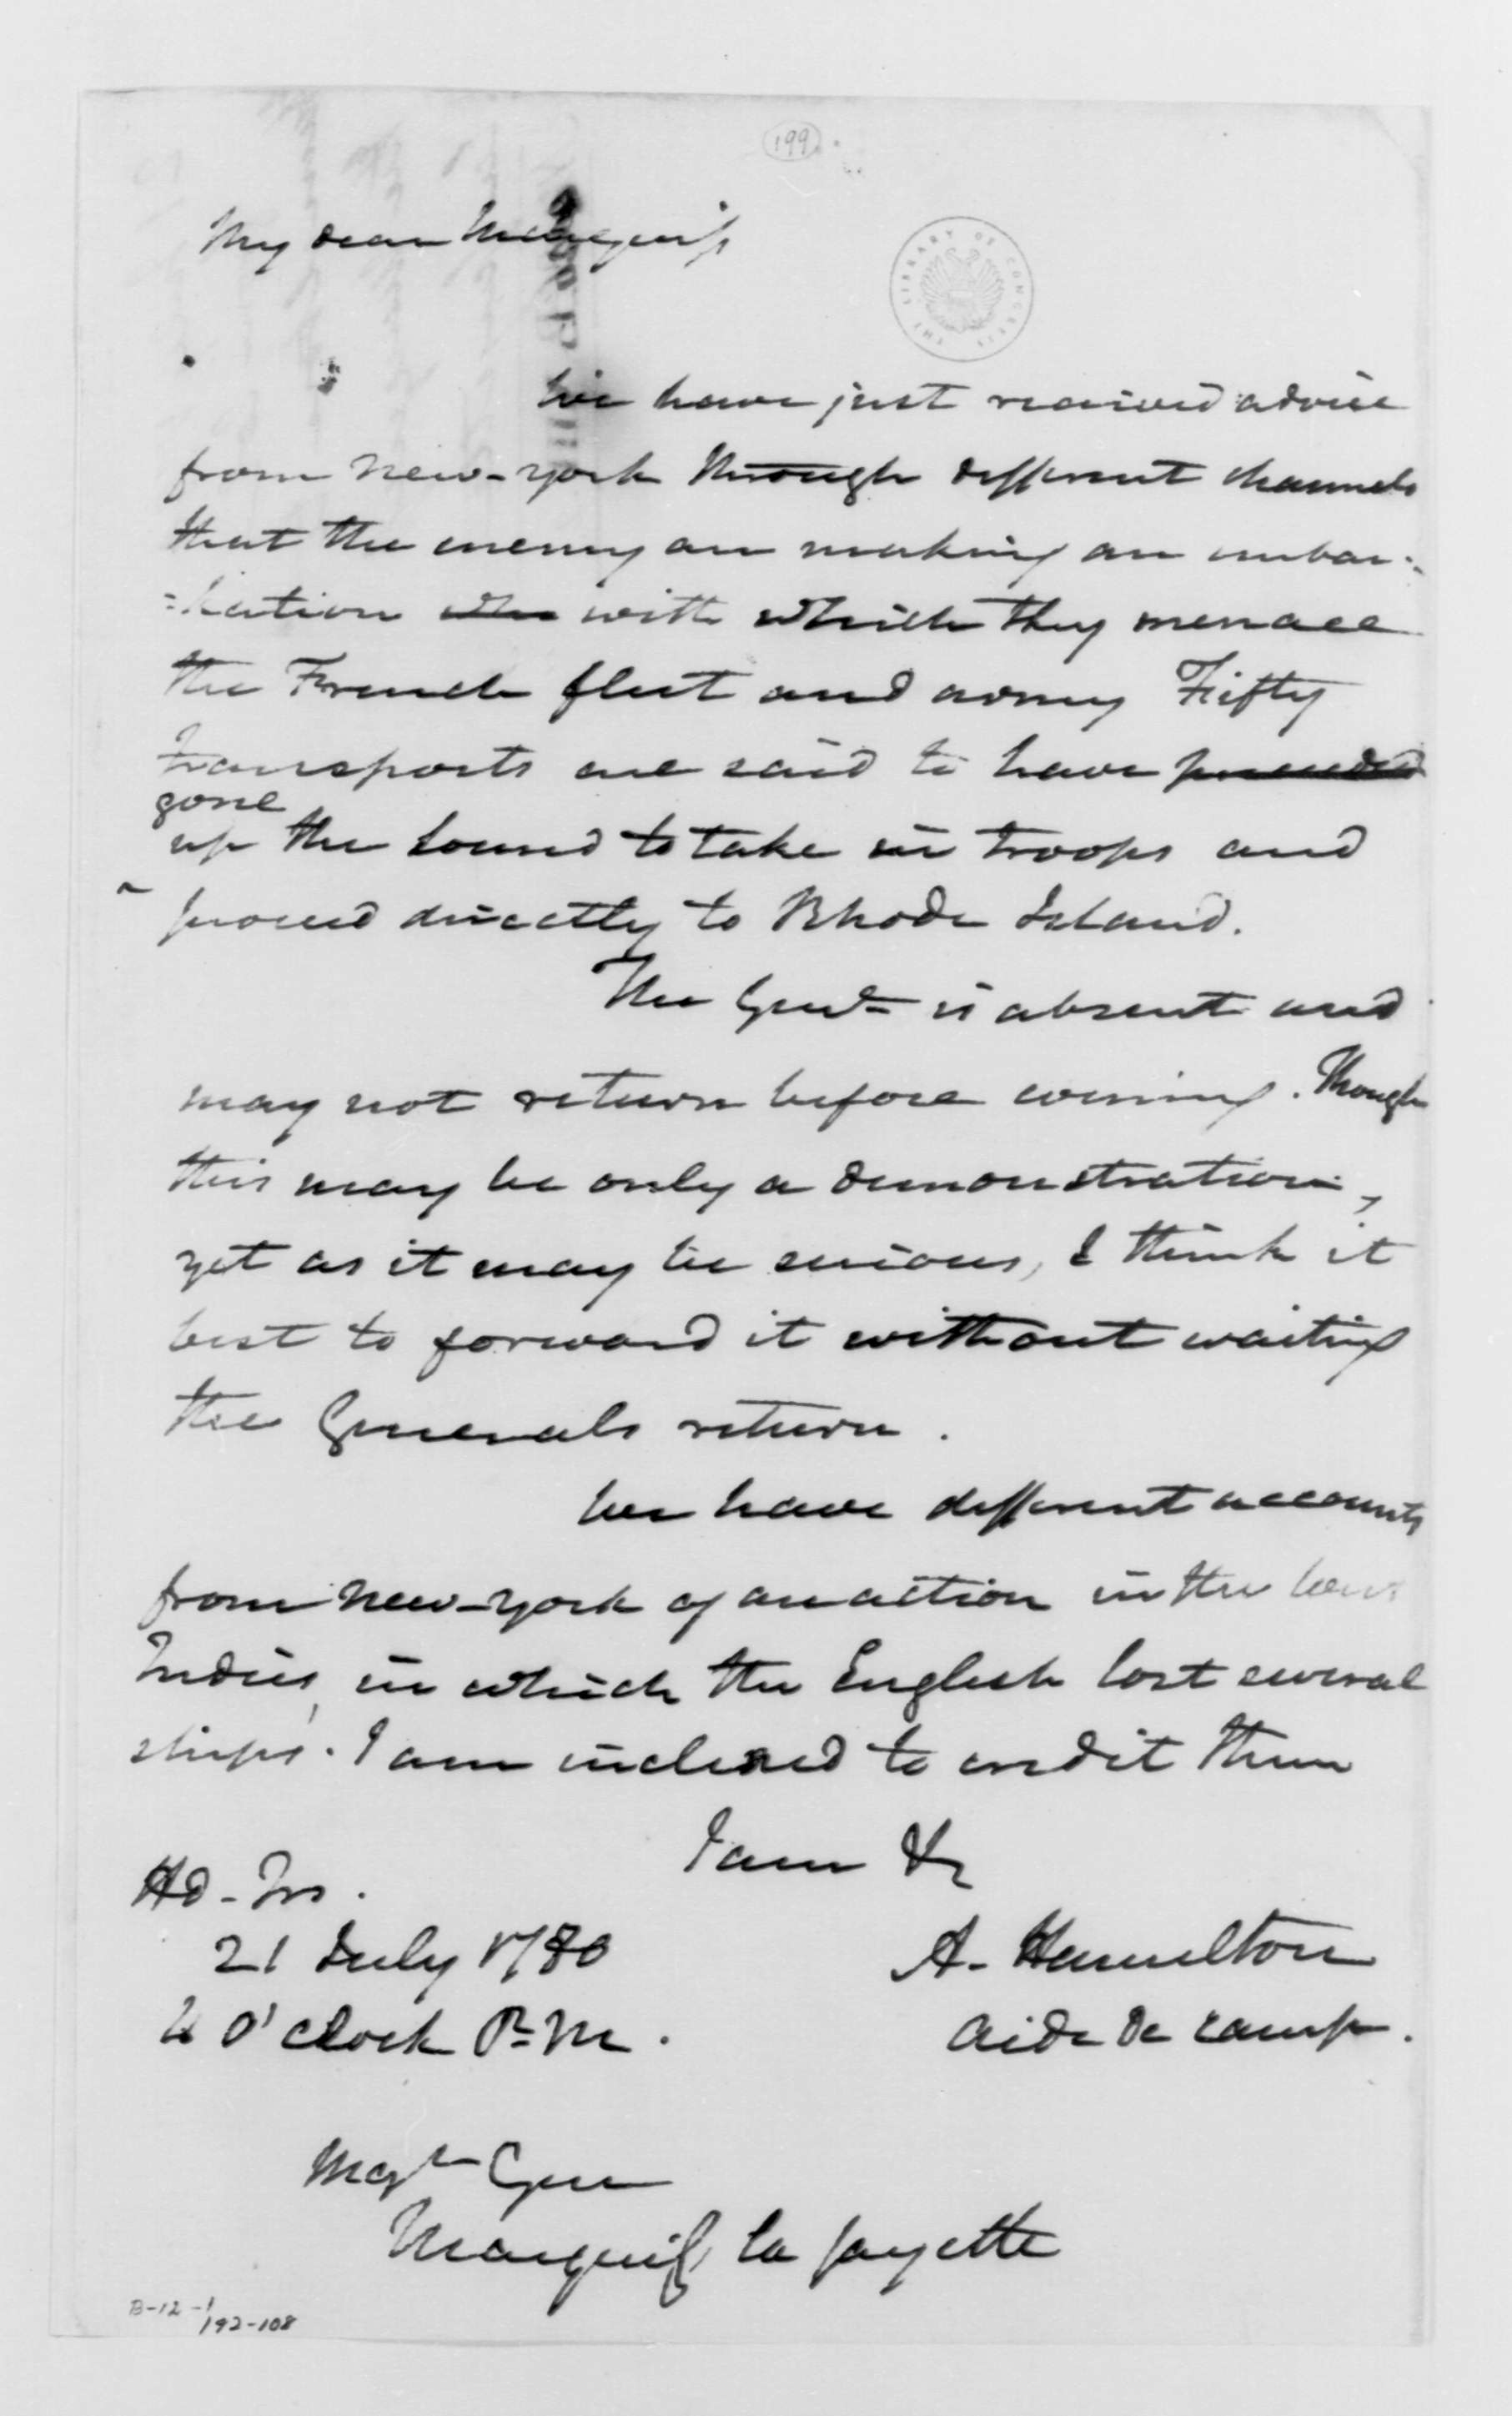 199
My dear Marquis
THE LIBRARY OF CONGRESS
We have just received advice
from New-York through different channels
that the enemy are making an embar-
=kation with which they menace
the French fleet and army Fifty
transports are said to have
gone
up the Sound to take in troops and
proceed directly to Rhode Island.
The Genl is absent and
may not return before evening. Though
this may be only a demonstration,
yet as it may be serious, I think it
best to forward it without waiting
the Generals return.
We have different accounts
from New-York of an action in the West
Indies, in which the English lost several
ships. I am inclined to credit them
I am &c
Hd-Qrs.
21 July 1780
4 O'clock P.M.
A. Hamilton
Aide De camp.
Majr Gen
Marquis la fayette
B-12-1/192-108